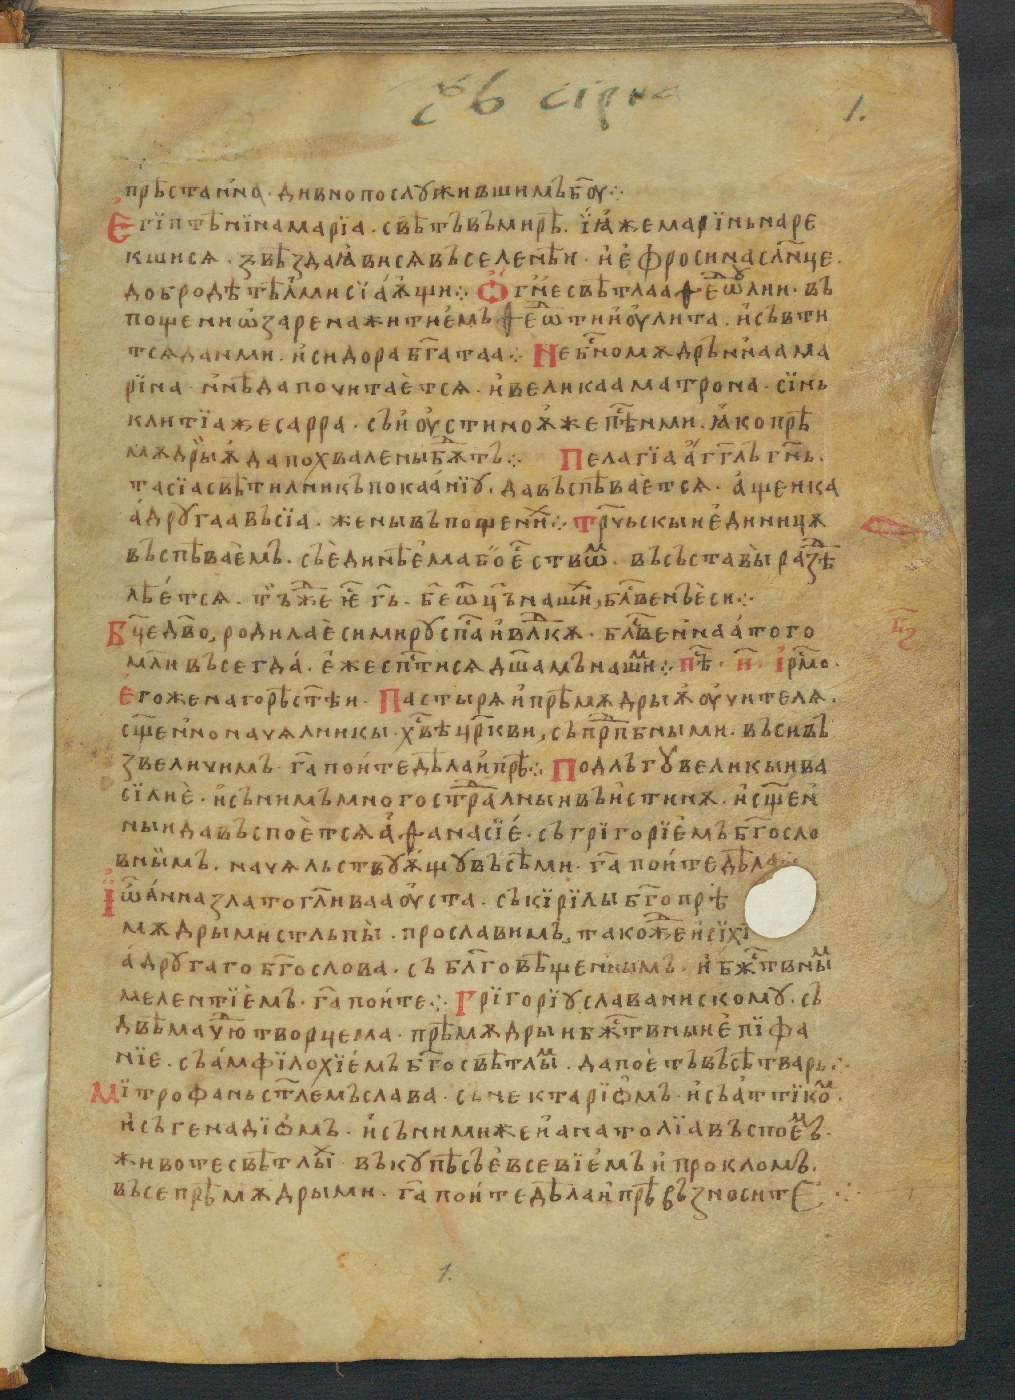 1.
прѣстаннѡ · дивно послуживши́мъ бг҃оу ⁘
Е҆гіптѣнїна марїа · свѣтъ въ мирѣ · і҆ꙗ҆же марїнь наре
кшисѧ · ѕвѣзда ꙗ҆ви сѧ въселенѣи · и҆ е҆фросина сл҃нце ·
добродѣтѣлми сїа́ѫщи ⁘ Ѻ҆гн҃е свѣтлаа ѳеѡⷣꙋли · въ
пощени ѡ҆зарена житиемъ ѳеѡⷣти и҆ оулита · и҆съвти
тсѧ да и ми · и҆сидора бг҃атаа ⁘ Неб҃номѫдрънаа ма
рїна · и҆ нн҃ѣ да почитаѐтсѧ · и҆ великаа матрона · сїнь
клитїа же сарра · съ и҆ оу҆стиноѫ же пѣⷭ҇нми · ꙗ҆ко прѣ
мѫдрыѫ да похвалены бѫⷣтъ ⁘ Пелагїа а҆гг҃лъ гн҃ь ·
та сїа свѣтилникъ покаа́нїу · да въспѣваѐтсѧ · а҆ще и ка
а҆ другаа въсїа · жены въ пощени ⁘ трⷪ҇чьскыи е҆диницѧ
въспѣваѐмъ · съединѣе҆ма бо́жⷭ҇ствѡⷨ · въ съставы̀ раⷥдѣ
лѣе́тсѧ · тъⷤ е҆ⷭ гь҃ · б҃е ѡц҃ъ наши́ⷯ, бл҃венъ ѐси ⁘
Бц҃е дв҃о, родила ѐси миру сп҃са и҆ влⷣкѫ · бл҃веннаа а́ того
мл҃и въсегда́ · е҆же сп҃стисѧ дш҃амъ нашиⷨ ⁘ пѣⷭ · и҃ · і҆рⷨо ·
е҆гоже на горѣ ст҃ѣи · Пастырѧ и҆ прѣмѫдрыѫ оу҆чителѧ ·
сщ҃енноначѧлникы · хв҃ѣ цр҃кви, съ прⷣпбными · въси въ
звеличимъ · га҃ поите дѣла и҆ прѣ ⁘ Подлъгу великыи ва
сїлиѐ · и҆ съ нимъ многострⷣалныи въ и҆стинѫ · и҆ сщ҃ен
ныи да въспоѐтсѧ а҆ѳанасїе́ · съ грїгорїе҆мъ бг҃осло
вныи́мъ · начѧльствуѫ҆щу въсѣми · га҃ поите дѣла
І҆ѡа́нна златогл҃иваа оу҆ста · съ кїрїлы бг҃опрѣ
мѫдрыми стльпы̀ · прославимъ, такоⷤде и҆сїхї
а҆ другаго бг҃ослова · съ бл҃говѣщеннымъ · и҆ бж҃ⷭ҇твныⷨ
мелентїе҆мъ · га҃ поите ⁘ Грїгорїу слава нискому · съ
двѣма чюⷣтворцема · прѣмѫдрыи бж҃ⷭ҇твныи е҆пїфа
нїе · съ а҆мфїлохїе́мъ бг҃освѣтлыⷨ · да поѐтъ въсѣ тварь ⁘
Мїтрофань ст҃лемъ слава · съ нектарїѻ҆мъ · и҆ съ а҆ттїкоⷨ ·
и҆ съ генадїѻ҆мъ · и҆ съ ними же и҆ анатолїа въспоеⷨ ·
животе свѣтлыⷯи въкупѣ съ е҆всевїе҆мъ и҆ прокломъ ·
въсепрѣмѫдрыми · га҃ поите дѣла и҆ прѣвъзносите ⁘
1.